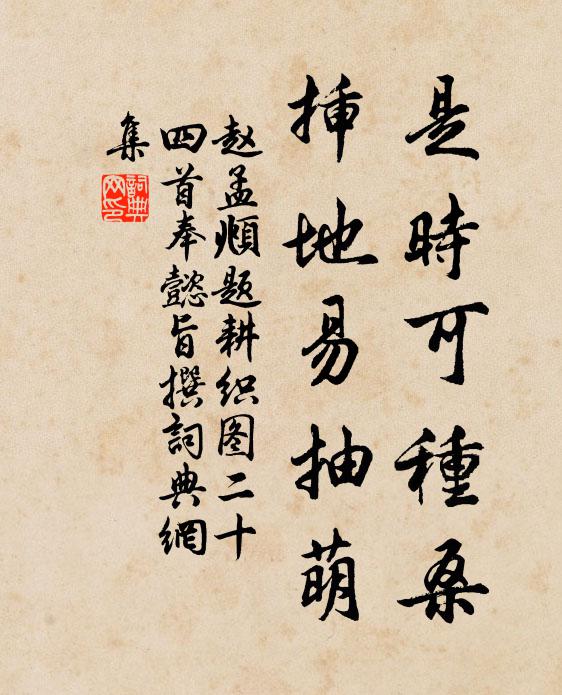 是時可種桑
揷地易抽萌
赵孟頫题耕织图二十
四首奉懿旨撰詞典網
集
詞典
网印